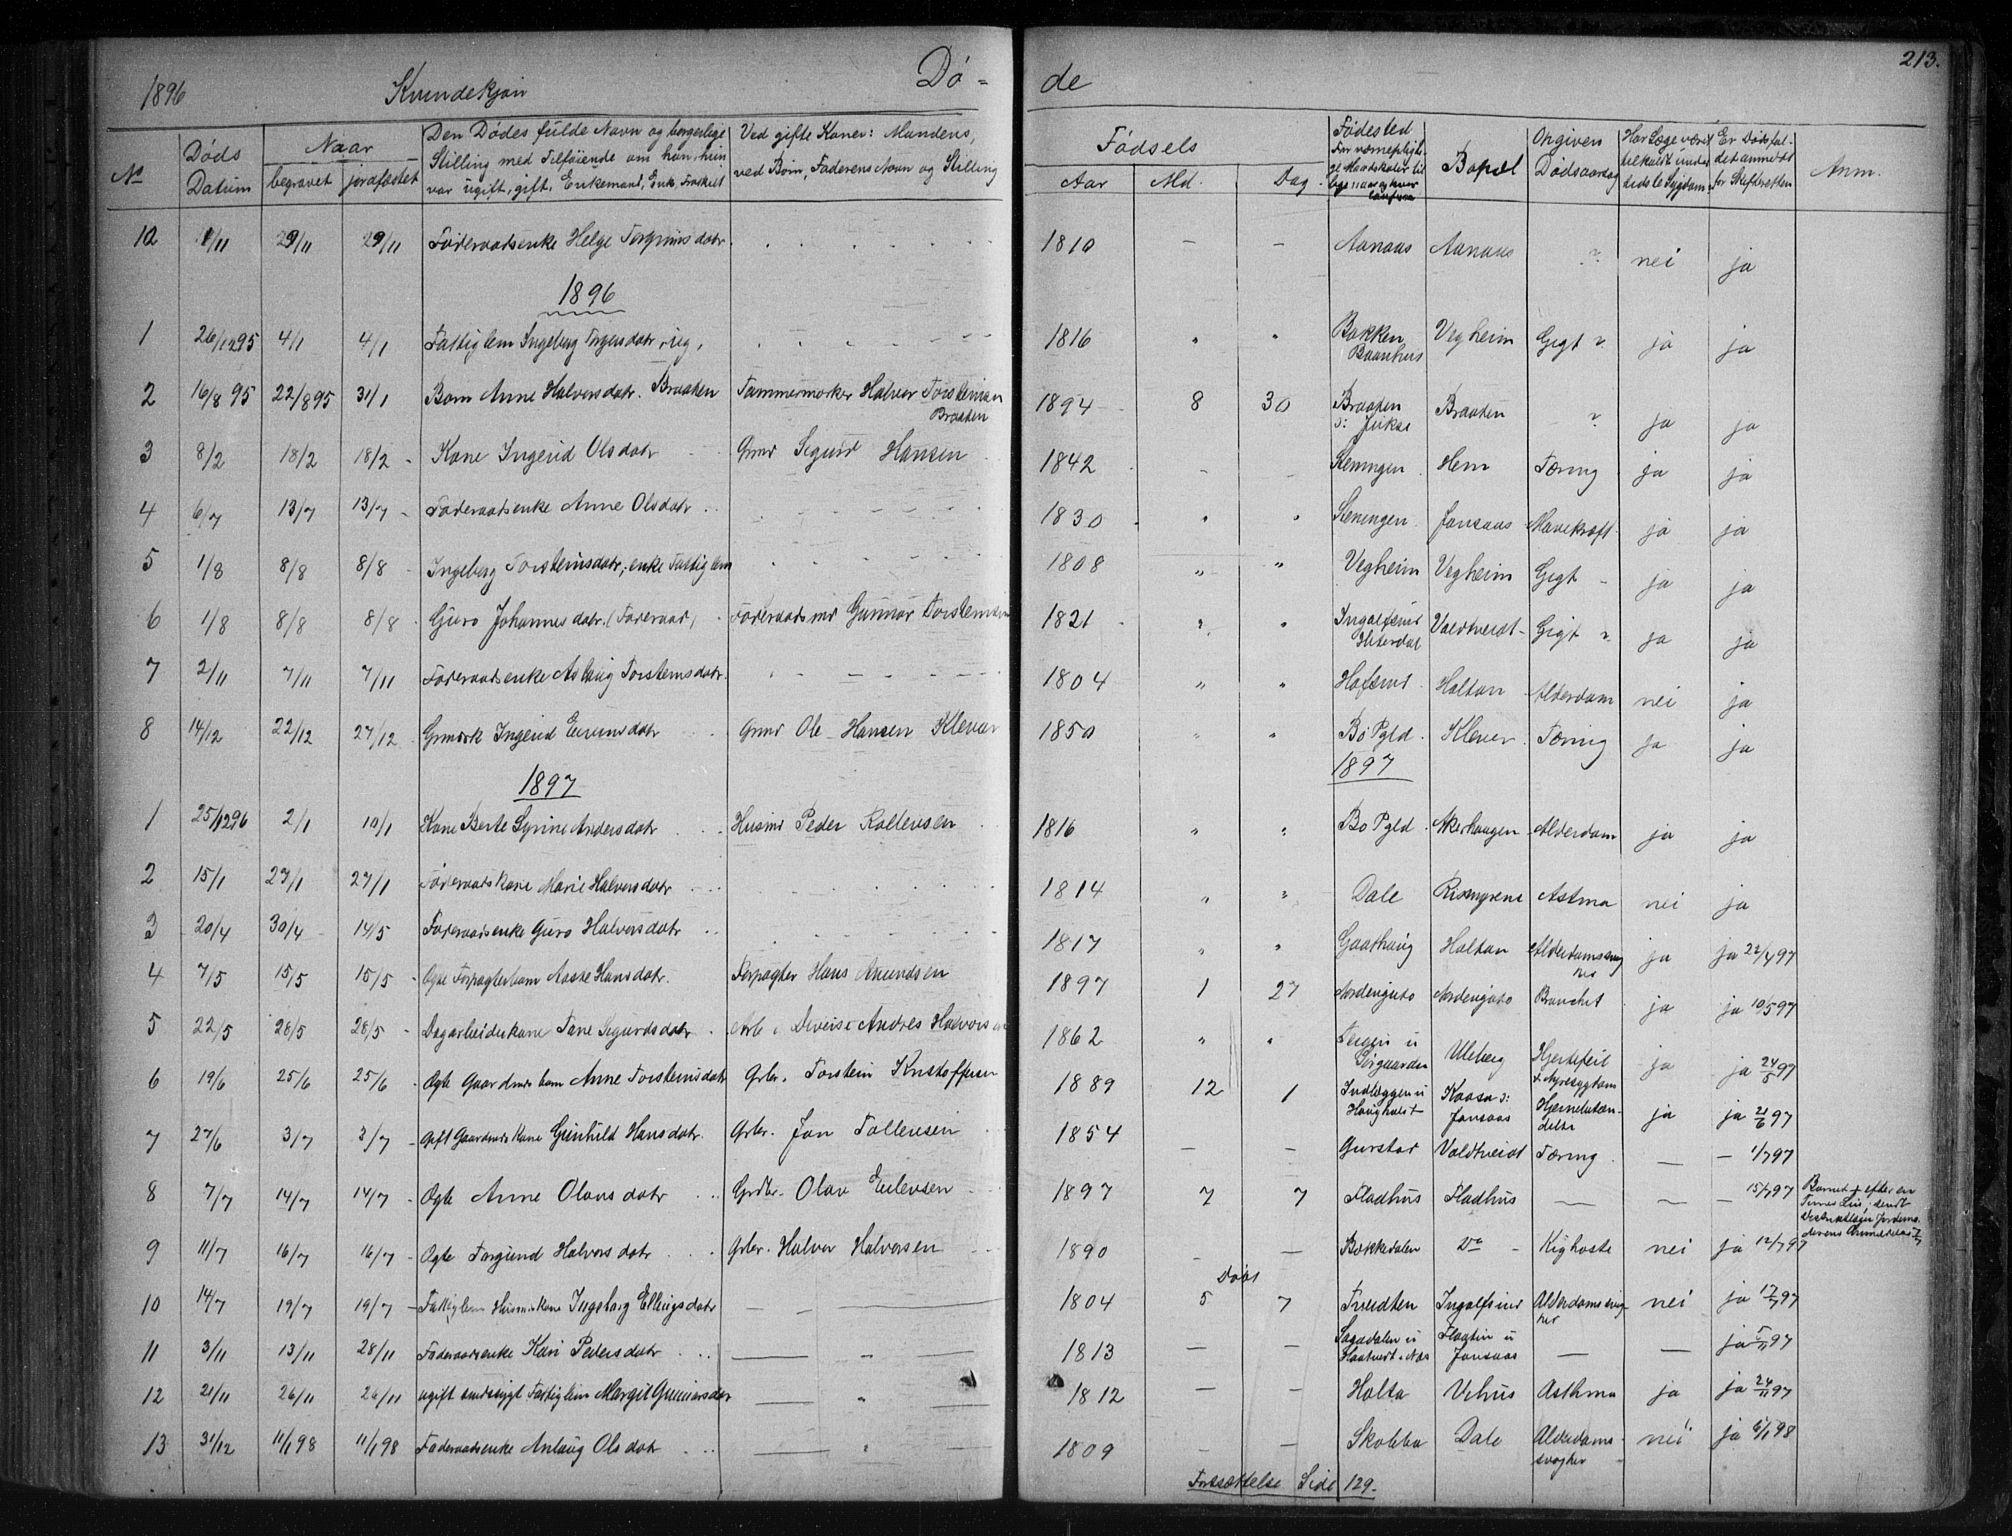 1896 Kvindekjøn Dø- de 213.
No Døds Datum Naar begravet jordfæstet Den Dødes fulde Navn og borgerlige Stilling med Tilføiende om han, hun var ugift, gift, Enkemand, Enke, Fraskilt Ved gifte Koner: Mandens, ved Børn, Faderens Navn og Stilling Fødsels Aar Md. Dag Fødested Bopæl Opgiven Dødsaarsag Har Læge været tilkaldt under sidste Sygdom Er Dødsfaldet anmeldt for Skifteretten Anm.
10 29/11 29/11 Føderaadsenke Helge Torgrimsdatr 1810 — — Aanaas Aanaas ? nei ja
1896
1 26/12 95 4/1 4/1 Fattiglem Ingeborg Torgersdatr, ug, 1816 " " Bakken Vegheim Gigt ? ja ja
2 16/8 95 22/8 95 31/1 Barn Anne Halvorsdatr. Braaten Tømmermærker Halvor Torstensen Braaten 1894 8 30 Braaten Braaten ? ja ja
3 8/2 18/2 18/2 Kone Ingerid Olsdatr Grmd Sigurd Hansen 1842 Steningen Hem Tæring ja ja
4 6/7 13/7 13/7 Føderaadsenke Anne Olsdatr 1830 " " Steningen Jønsaas Mavekræft ja ja
5 1/8 8/8 8/8 Ingeborg Torsteinsdatr, enke Fattiglem 1808 " " Vegheim Vegheim Gigt ja ja
6 1/8 8/8 8/8 Guro Johannesdatr. (Føderaad) Føderaadsmd Gunnar Torstensen 1821 " " Ingolfsrud Hiterdal Valdtveidt Gigt ? ja ja
7 2/11 7/11 7/11 Føderaadsenke Aslaug Torstensdatr 1804 " " Hafsrud Holtan Alderdom nei ja
8 14/12 22/12 27/12 Grmdsk Ingerid Eivindsdatr Grmd Ole Hansen Klevar 1850 " " Bø Pgld Klevar Tæring ja ja
1897 1897
1 25/12 96 2/1 10/1 Kone Berte Syrine Andersdatr Husmd Peder Rollevsen 1816 " " Bø Pgld Akerhaugen Alderdom ja ja
2 15/1 27/1 27/1 Føderaadskone Marie Halvorsdatr 1814 " " Dale Astma nei ja
3 20/4 30/4 14/5 Føderaadsenke Guro Halvorsdatr 1817 " " Gaarhaug Holtan Alderdomssvaghed ja ja 22/4 97
4 7/5 15/5 15/5 Ogte Forpagterbarn Aaste Hansdatr. Forpagter Hans Amundsen 1897 1 27 Nordenguto Nordenguto Bronchit ja ja 10/5 97
5 22/5 28/5 28/5 Dagarbeiderkone Tone Sigurdsdatr Andres Halvorsen 1862 " " Sørgaarden Uleberg Hjertefeil & Nyresygdom ja ja 24/5 97
6 19/6 25/6 25/6 Ogte Gaardmds barn Anne Torstensdatr Grbr. Torstein Kristoffersen 1889 12 1 Indlæggen u Haugholt Kaasa Jønsaas Hjernebetændelse ja ja 21/6 97
7 27/6 3/7 3/7 Gift Gaardmds Kone Gunhild Hansdatr. Grbr. Jon Tollevsen 1854 — — Gurstad Valdtveidt Tæring — — 1/7 97
8 7/7 14/7 14/7 Ogte Anne Olavsdatr Grdbr. Olav Eilevsen 1897 7 7 Fladhus Fladhus — — — 15/7 97 Barnet efter en
9 11/7 16/7 16/7 Ogte Torgund Halvorsdatr Grbr. Halvor Halvorsen 1890 — — Bækkedalen Do Kighoste nei ja 12/7 97
10 14/7 19/7 19/7 Fattiglem Husmdskone Ingeborg Ellingsdatr — — 1804 Døbt 5 7 Treidten Ingolfsrud Alderdomssvaghed nei ja 17/7 97
11 3/11 13/11 28/11 Føderaadsenke Kari Pedersdatr — " — 1813 — — Sagadalen u Flaatin u Jønsaas — — ja 5/11 97
12 21/11 26/11 26/11 ugift sindssygt Fattiglem Margit Gunnarsdatr — " — 1812 — — Holta Vehus Asthma ja ja 24/11 97
13 31/12 11/1 98 11/1 98 Føderaadsenke Anlaug Olsdatr — " — 1809 — — Skobba Dale Alderdomssvaghed nei ja 6/1 98
Fortsættelse Side 129.